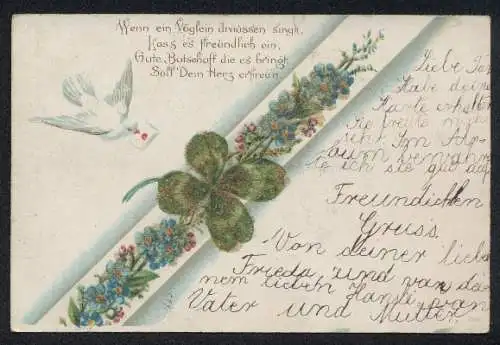 Wenn ein Vöglein draussen singt,
Lass es freundlich ein,
Gute Botschaft die es bringt
Soll Dein Herz erfreun.
Liebe
Habe deine
Karte erhalten
Sie freue mich
seht Im Alp
bum verwahr
te ich sie gut auf
Freundlichen
Gruss
Von deiner lieb
Frieda und von da
nem lieben Hansli von
Vater und Mutter